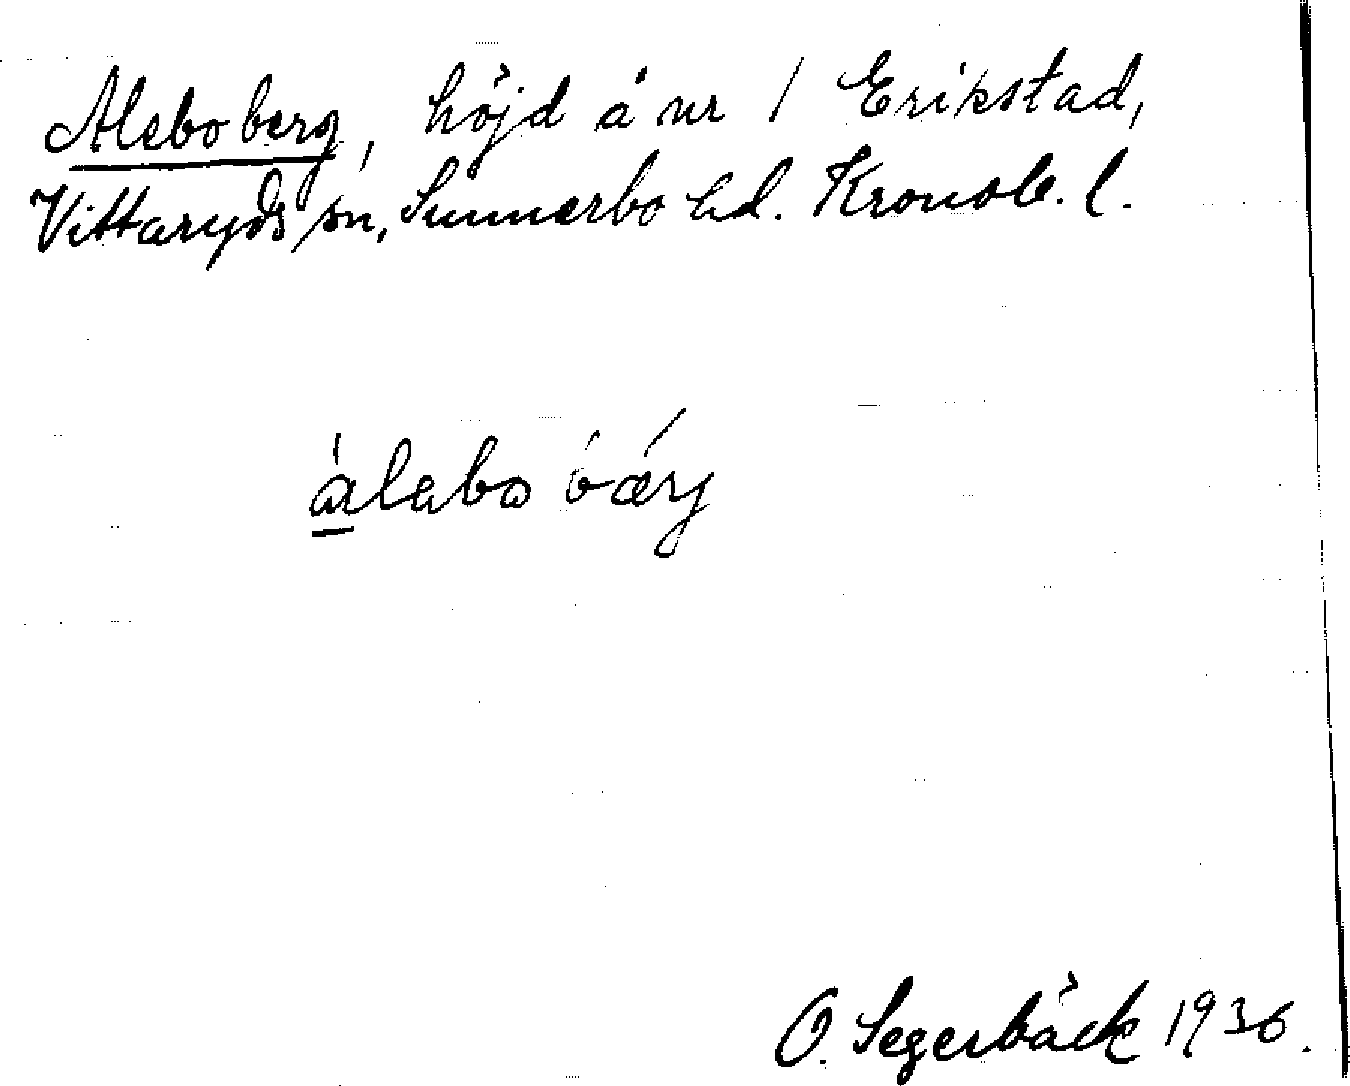 Aleboberg, höjd å nr 1 Erikstad,
Vittaryds sn, Sunnerbo hd. Kronob. l.
álebo bárj
O. Segerbäck 1936.